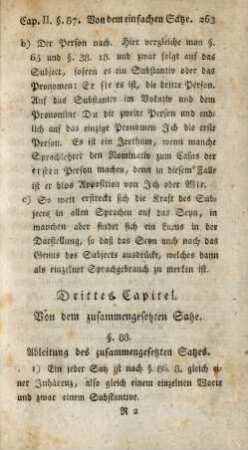 Cap. II. §. 87. Von dem einfachen Sätze. 263
b) Der Person nach. Hier vergleiche man §.
65 und §. 38. 18. und zwar folgt auf das
Subject, sofern es ein Substantiv oder das
Pronomen Er sie es ist, die dritte Person.
Auf das Substantiv im Vokativ und dem
Pronomine Du die zweite Person und end-
lich auf das einzige Pronomen Ich die erste
Person. Es ist ein Irrthum, wenn manche
Sprachlehrer den Nominativ zum Casus der
ersten Person machen, denn in diesem Falle
ist er blos Apposition von Ich oder Wir.
c) So weit erstreckt sich die Kraft des Sub-
jects in allen Sprachen auf das Seyn, in
manchen aber findet sich ein Luxus in der
Darstellung, so daß das Seyn auch noch das
Genus des Subjects ausdrückt, welches dann
als einzelner Sprachgebrauch zu merken ist.
Drittes Capitel.
Von dem zusammengesetzten Satze.
§. 88.
Ableitung des zusammengesetzten Satzes.
1) Ein jeder Satz ist nach §. 86. 8. gleich ei-
ner Inhärenz, also gleich einem einzelnen Worte
und zwar einem Substantive.
R 2